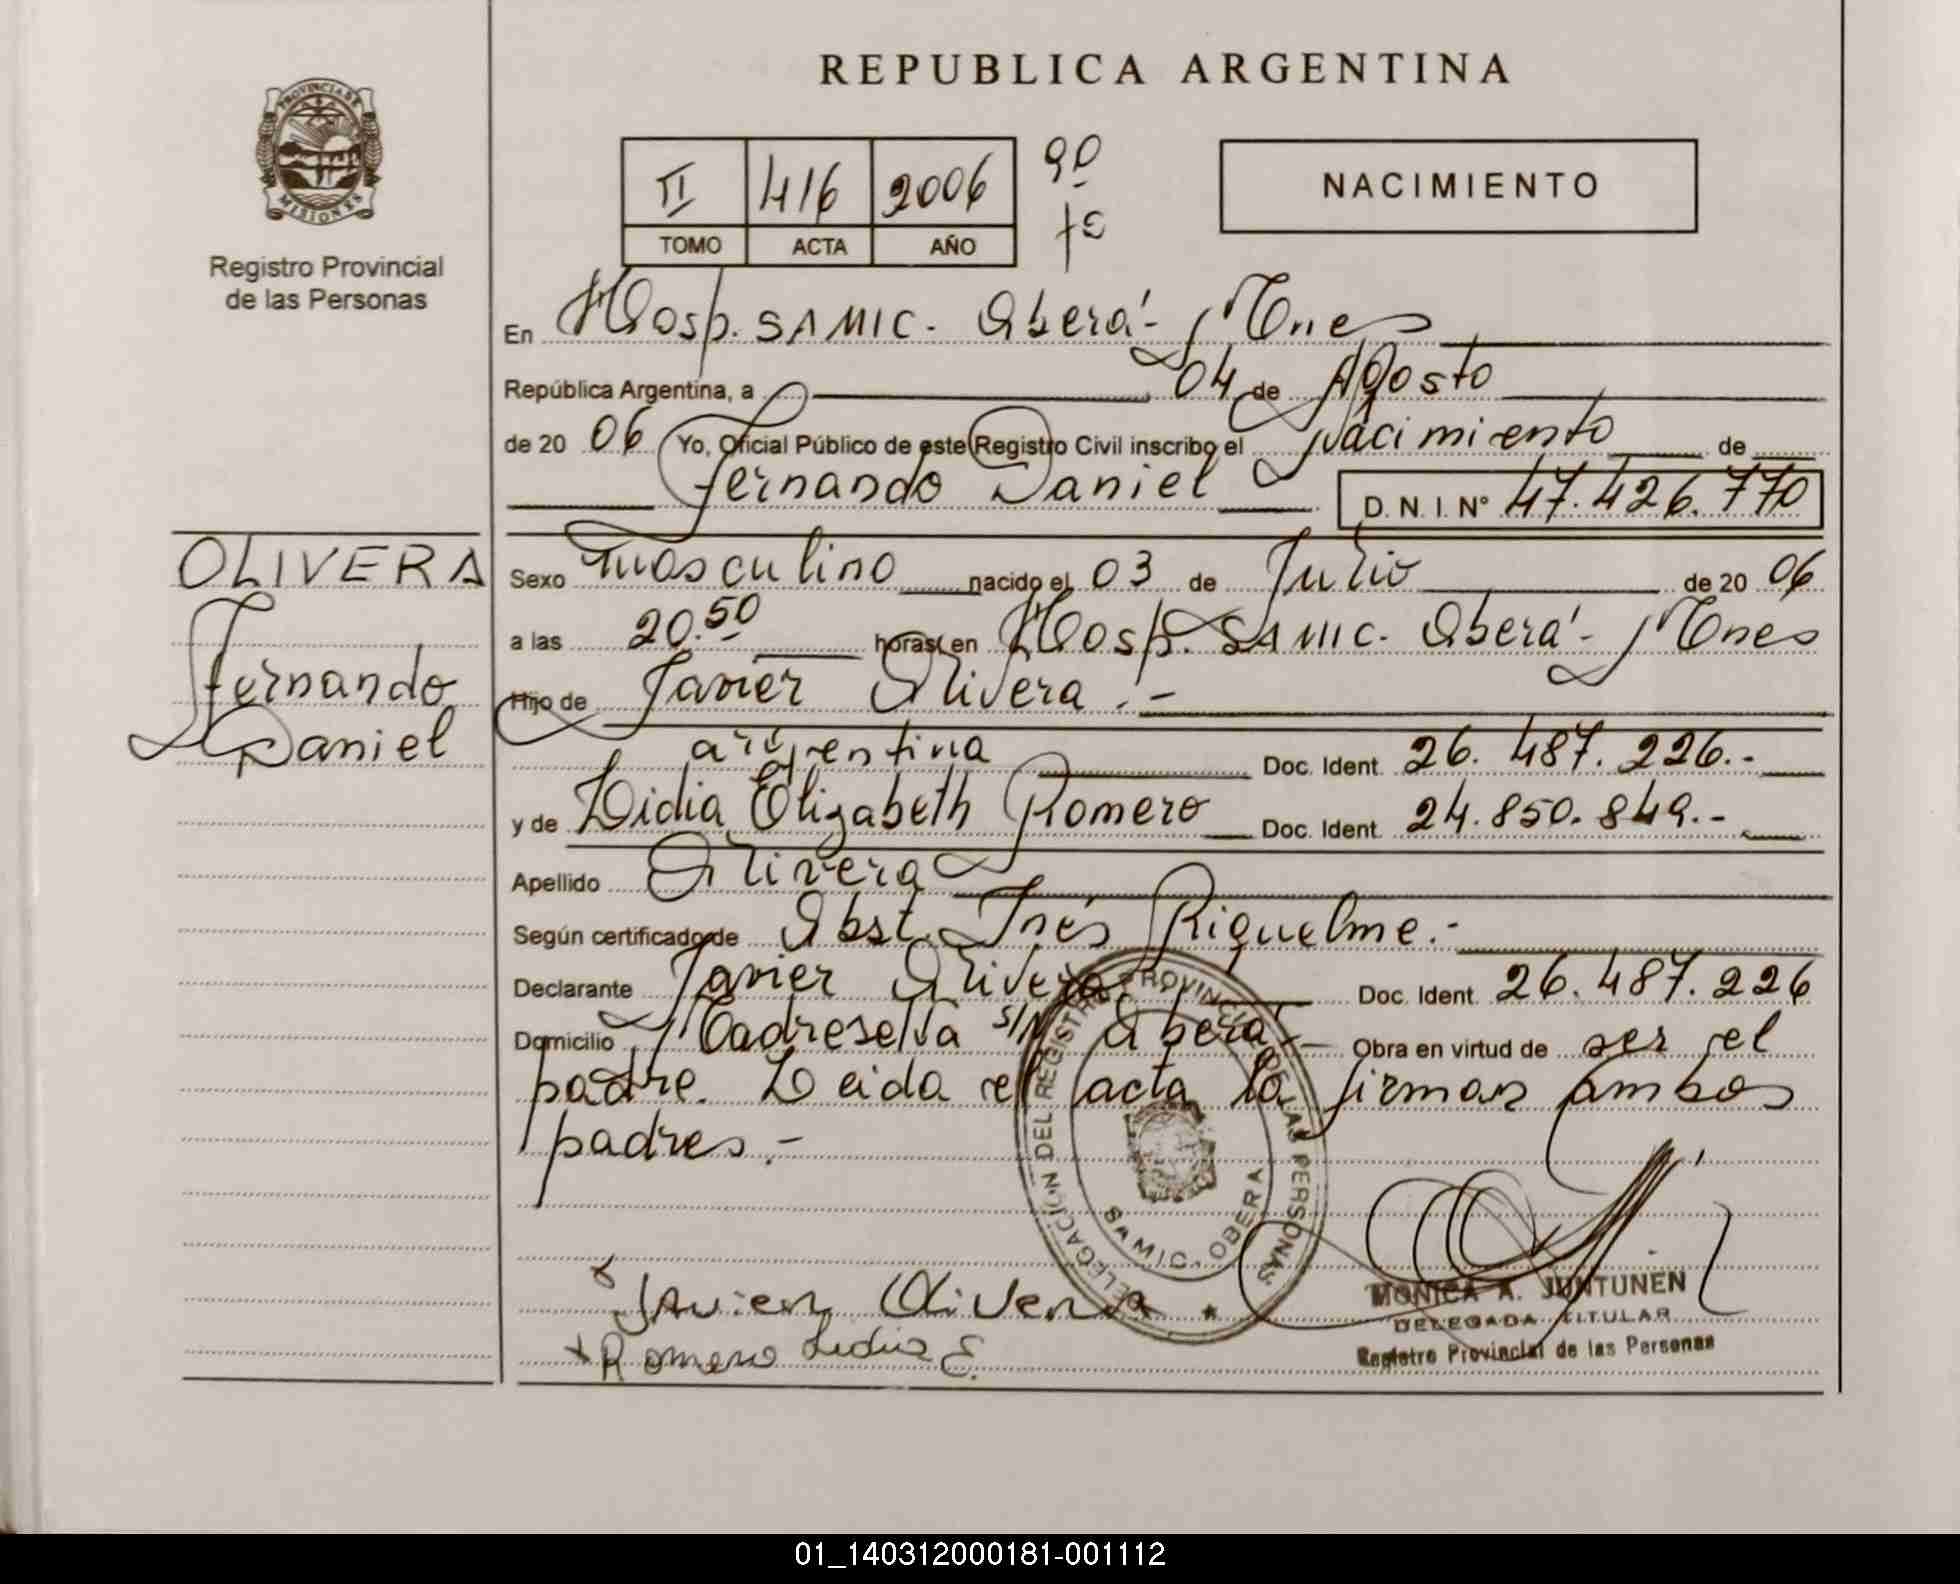 REPUBLICA ARGENTINA
PROVINCIA DE
MISIONES
Registro Provincial
de las Personas
II 416 2006
TOMO ACTA AÑO
NACIMIENTO
En Hosp. SAMIC. Oberá - Mnes
República Argentina, a 04 de Agosto
de 20 06 Yo, Oficial Público de este Registro Civil inscribo el Nacimiento de
Fernando Daniel D. N. I. Nº 47.426.770
OLIVERA
Fernando
Daniel
Sexo masculino nacido el 03 de Julio de 20 06
a las 20.50 horas, en Hosp. SAMIC. Oberá - Mnes
Hijo de Javier Olivera.-
argentina Doc. Ident. 26.487.226.-
y de Lidia Elizabeth Romero Doc. Ident. 24.850.849.-
Apellido Olivera
Según certificado de Obst. Inés Riquelme.-
Declarante Javier Olivera Doc. Ident. 26.487.226
Domicilio Madreselva S/N Oberá - Obra en virtud de ser el
padre. Leida el acta la firman ambos
padres.-
DELEGACION DEL REGISTRO PROVINCIAL DE LAS PERSONAS
SAMIC. OBERA
Javier Olivera
Romero Lidia E.
MONICA A. JUNTUNEN
DELEGADA TITULAR
Registro Provincial de las Personas
01_140312000181-001112